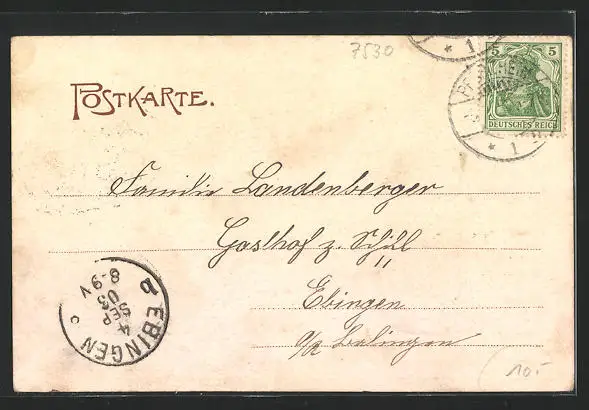 7530
POSTKARTE.
5 5
DEUTSCHES REICH
* 1
* 1
Familie Landenberger
Gasthof z. Schill
Ebingen
a/d Balingen
EBINGEN
4 SEP 05
8-9 V
c
10.-